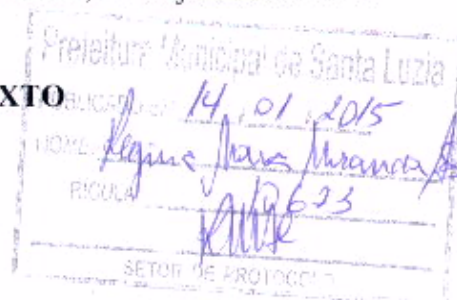 Prefeitura Municipal de Santa Luzia
XTO
PUBLICADO EM 14, 01, 2015
NOME: Regina Mara Miranda
SETOR DE PROTOCOLO